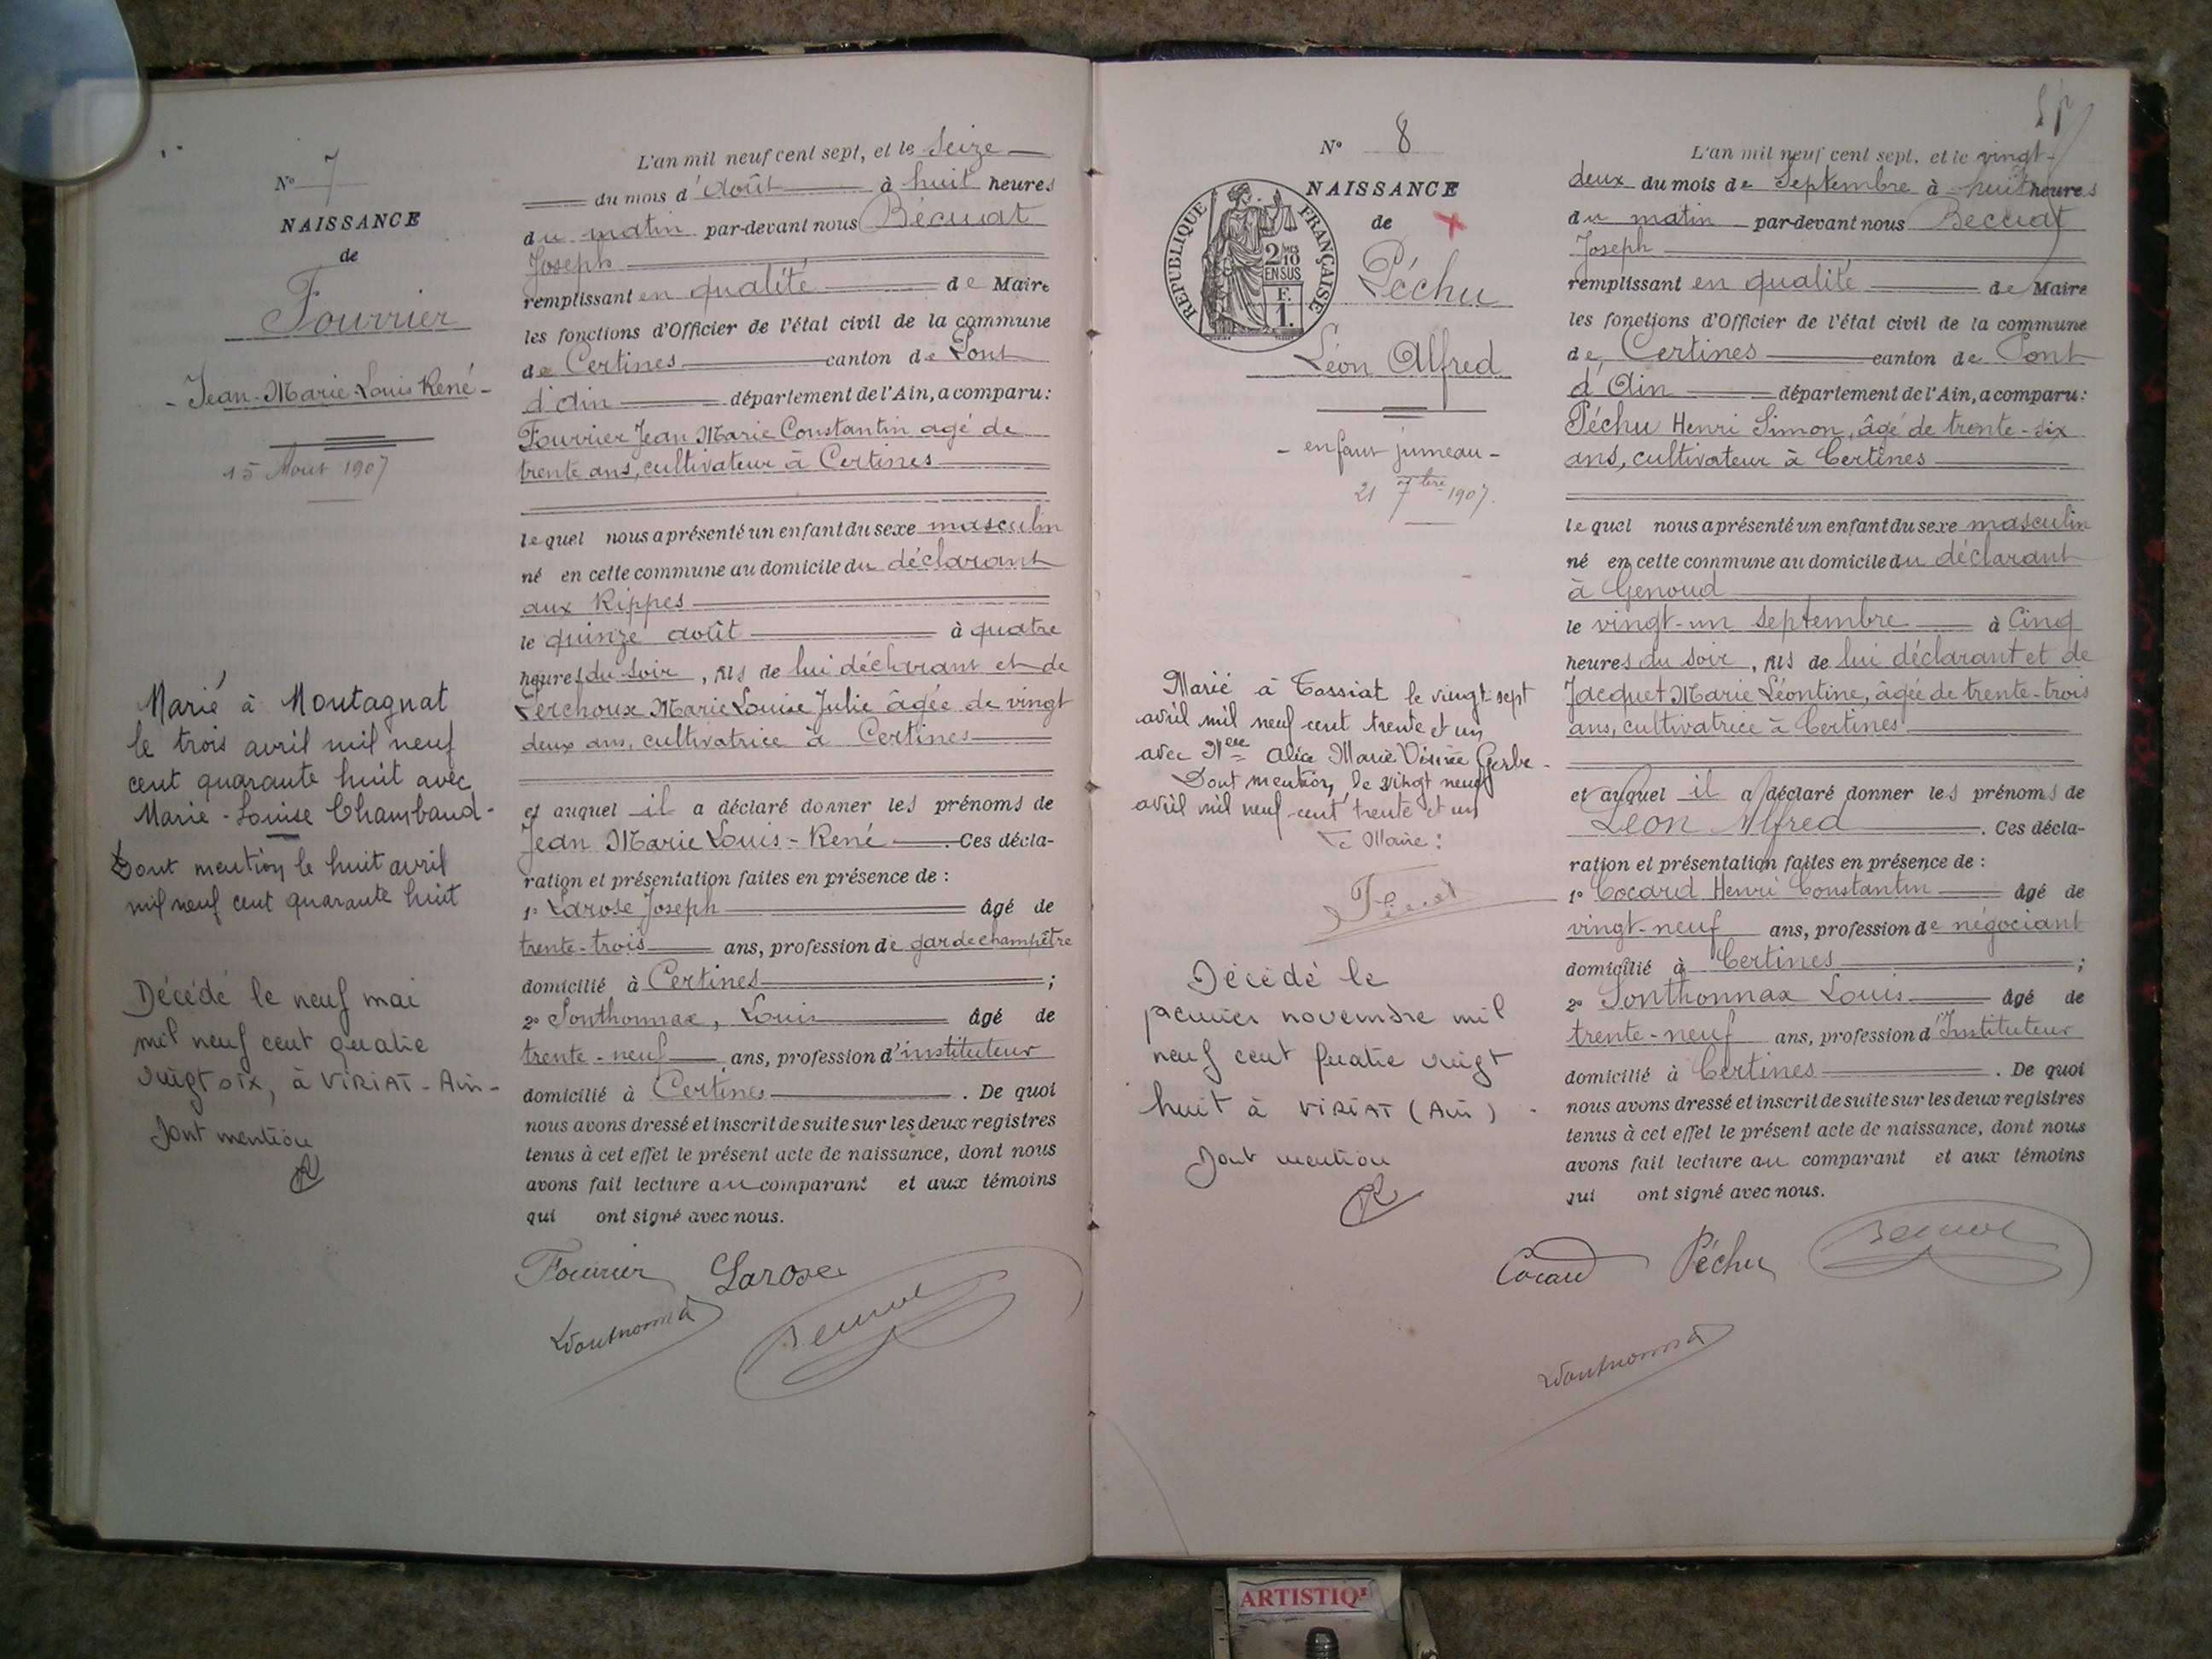 N° 7
NAISSANCE
de
Fourrier
- Jean-Marie-Louis René -
15 Août 1907
Marié à Montagnat
le trois avril mil neuf
cent quarante huit avec
Marie-Louise Chambaud-
Dont mention le huit avril
mil neuf cent quarante huit
Décédé le neuf mai
mil neuf cent quatre
vingt six, à VIRIAT-Ain-
Dont mention
L'an mil neuf cent sept, et le Seize
du mois d'Août à huit heures
du matin par-devant nous Bécuat
Joseph
remplissant en qualité de Maire
les fonctions d'Officier de l'état civil de la commune
de Certines canton de Pont
d'Ain département de l'Ain, a comparu:
Fourrier Jean Marie Constantin agé de
trente ans, cultivateur à Certines
lequel nous a présenté un enfant du sexe masculin
né en cette commune au domicile du déclarant
aux Rippes
le quinze août à quatre
heures du soir, fils de lui déclarant et de
Lerchoux Marie Louise Julie âgée de vingt
deux ans, cultivatrice à Certines
et auquel il a déclaré donner les prénoms de
Jean Marie Louis-René. Ces décla-
ration et présentation faites en présence de :
1° Larose Joseph âgé de
trente-trois ans, profession de garde champêtre
domicilié à Certines ;
2° Sonthonnax, Louis âgé de
trente-neuf ans, profession d'instituteur
domicilié à Certines. De quoi
nous avons dressé et inscrit de suite sur les deux registres
tenus à cet effet le présent acte de naissance, dont nous
avons fait lecture au comparant et aux témoins
qui ont signé avec nous.
Fourrier Larose
Sonthonnax Bécuat
N° 8
NAISSANCE
de
RÉPUBLIQUE FRANÇAISE
2 MES
10
EN SUS
F.
1.
Péchu
Léon Alfred
- enfant jumeau -
21 7bre 1907.
Marié à Tossiat le vingt-sept
avril mil neuf cent trente et un
avec Melle Alice Marie Désirée Gerbe-
Dont mention, le vingt neuf
avril mil neuf-cent trente et un
Le Maire:
Décédé le
premier novembre mil
neuf cent quatre vingt
huit à VIRIAT (Ain).
Dont mention
L'an mil neuf cent sept, et le vingt-
deux du mois de Septembre à huit heures
du matin par-devant nous Bécuat
Joseph
remplissant en qualité de Maire
les fonctions d'Officier de l'état civil de la commune
de Certines canton de Pont
d'Ain département de l'Ain, a comparu:
Péchu Henri Simon, âgé de trente-six
ans, cultivateur à Certines
lequel nous a présenté un enfant du sexe masculin
né en cette commune au domicile du déclarant
à Genoud
le vingt-un septembre à Cinq
heures du soir, fils de lui déclarant et de
Jacquet Marie Léontine, âgée de trente-trois
ans, cultivatrice à Certines
et auquel il a déclaré donner les prénoms de
Léon Alfred. Ces décla-
ration et présentation faites en présence de :
1° Cocard Henri Constantin âgé de
vingt-neuf ans, profession de négociant
domicilié à Certines ;
2° Sonthonnax Louis âgé de
trente-neuf ans, profession d'Instituteur
domicilié à Certines. De quoi
nous avons dressé et inscrit de suite sur les deux registres
tenus à cet effet le présent acte de naissance, dont nous
avons fait lecture au comparant et aux témoins
qui ont signé avec nous.
Cocard Péchu Bécuat
Sonthonnax
ARTISTIQ